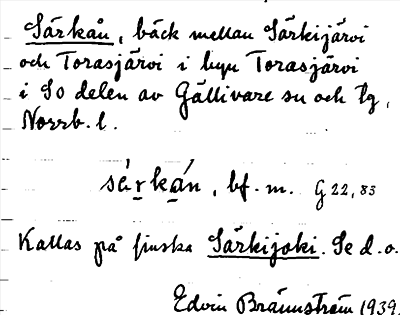 Särkån, bäck mellan Särkijärvi
och Torasjärvi i byn Torasjärvi
i So delen av Gällivare sn och tg,
Norrb. l.
sä́rkán, bf. m. G 22, 83
Kallas på finska Särkijoki. Se d. o.
Edvin Brännström 1939.